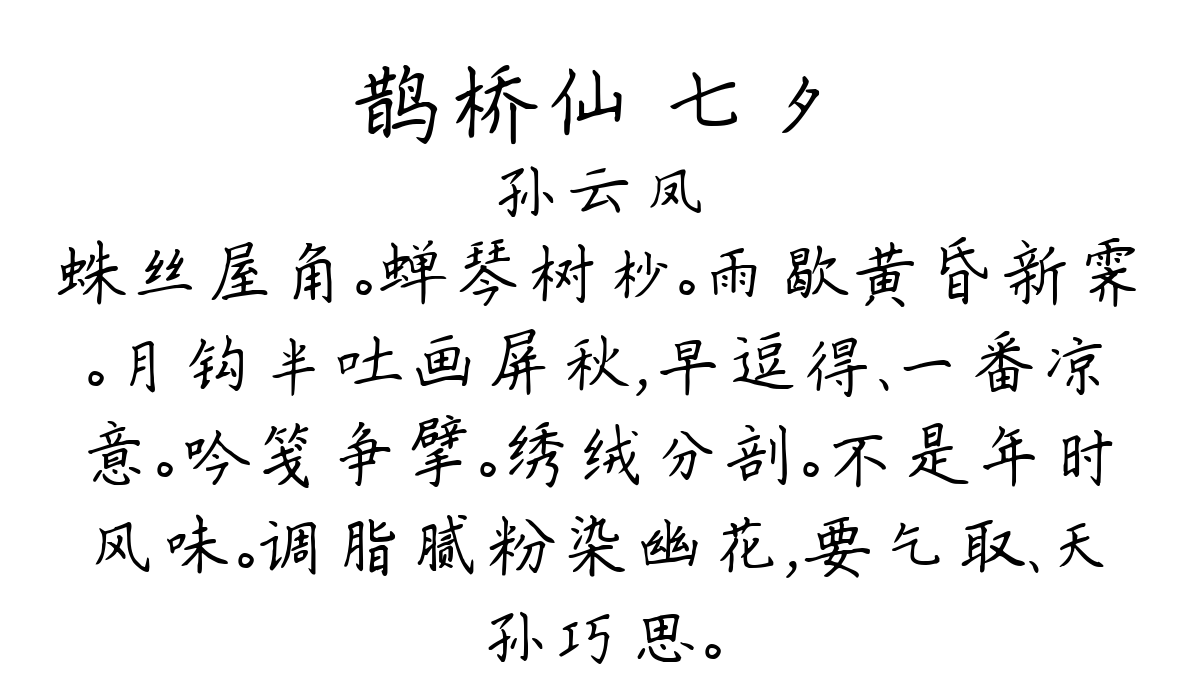 鹊桥仙 七夕
孙云凤
蛛丝屋角。蝉琴树杪。雨歇黄昏新霁
。月钩半吐画屏秋,早逗得、一番凉
意。吟笺争擘。绣绒分剖。不是年时
风味。调脂腻粉染幽花,要乞取、天
孙巧思。